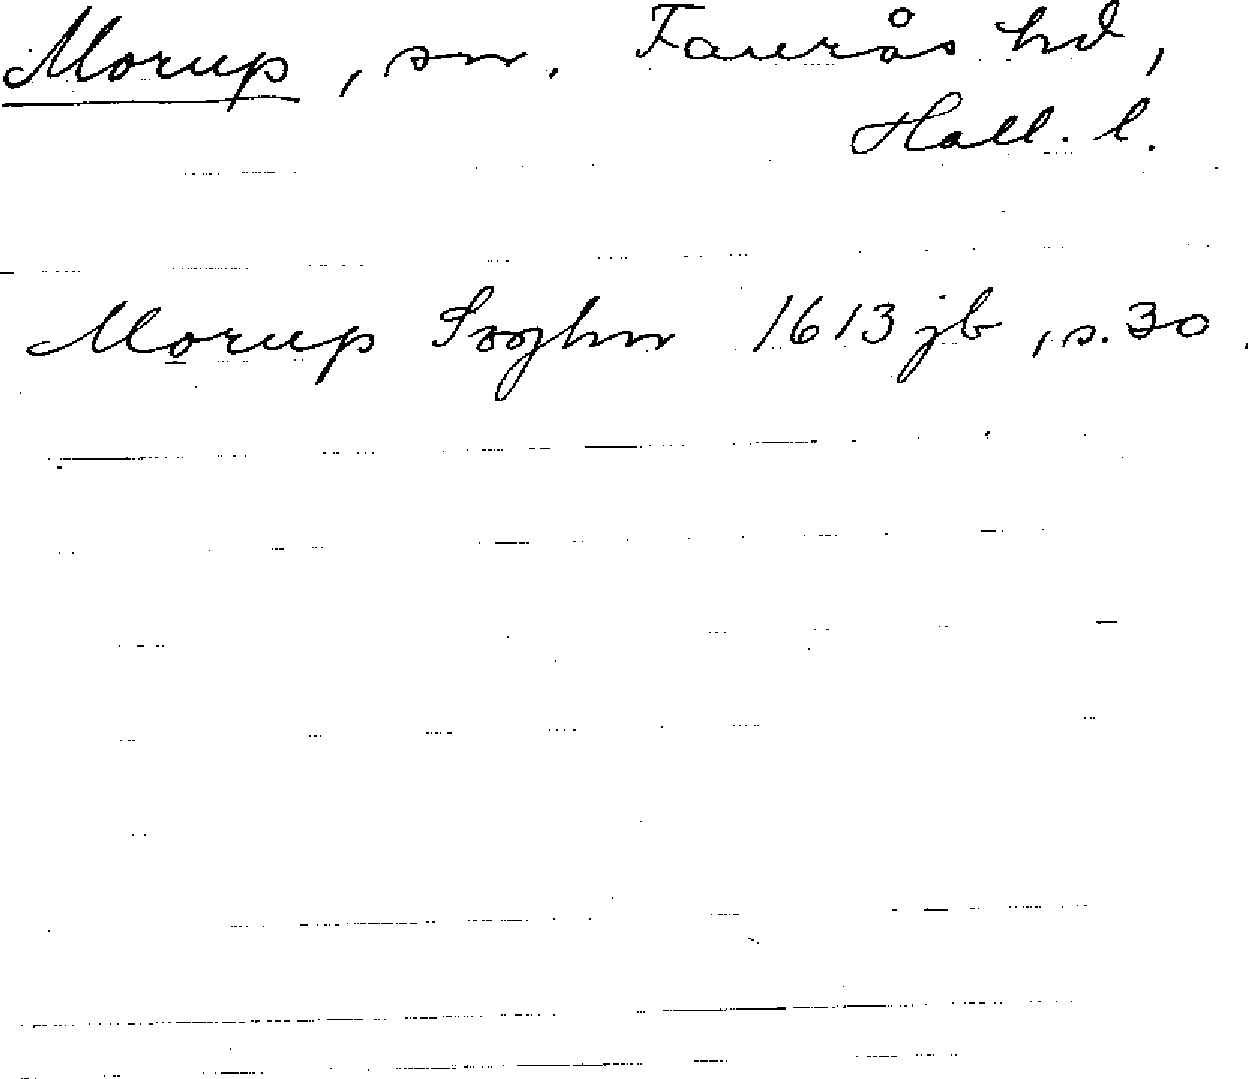 Morup, sn. Faurås hd,
Hall. l.
Morup Soghn 1613 jb, s. 30.